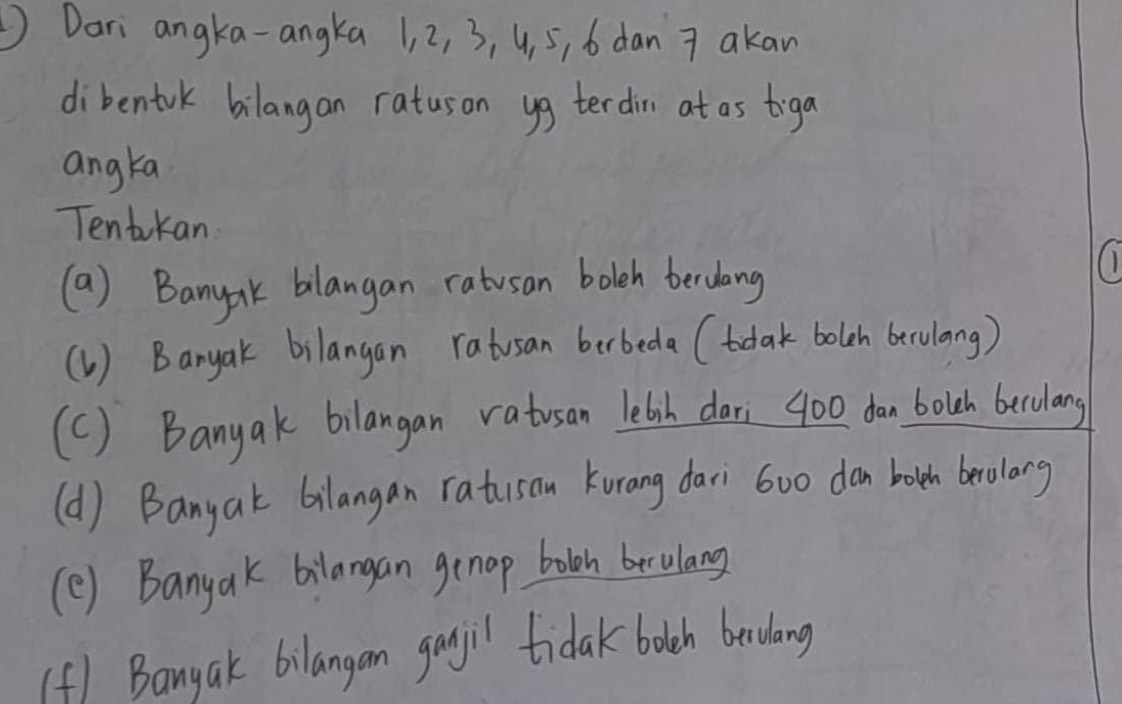 1) Dari angka-angka 1, 2, 3, 4, 5, 6 dan 7 akan
dibentuk bilangan ratusan yg terdiri atas tiga
angka.
Tentukan:
(a) Banyak bilangan ratusan boleh berulang
(b) Banyak bilangan ratusan berbeda (tidak boleh berulang)
(c) Banyak bilangan ratusan lebih dari 400 dan boleh berulang
(d) Banyak bilangan ratusan kurang dari 600 dan boleh berulang
(e) Banyak bilangan genap boleh berulang
(f) Banyak bilangan ganjil tidak boleh berulang
①